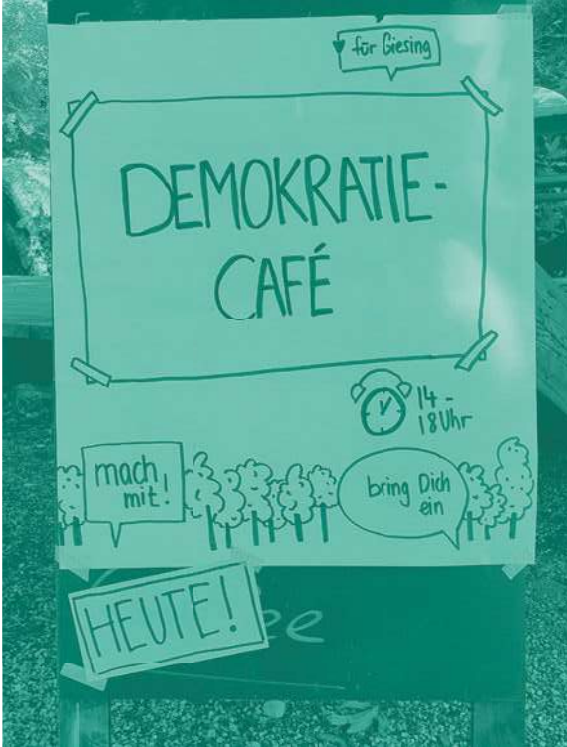 für Giesing
DEMOKRATIE-
CAFÉ
14-
18 Uhr
mach
mit!
bring Dich
ein
HEUTE!